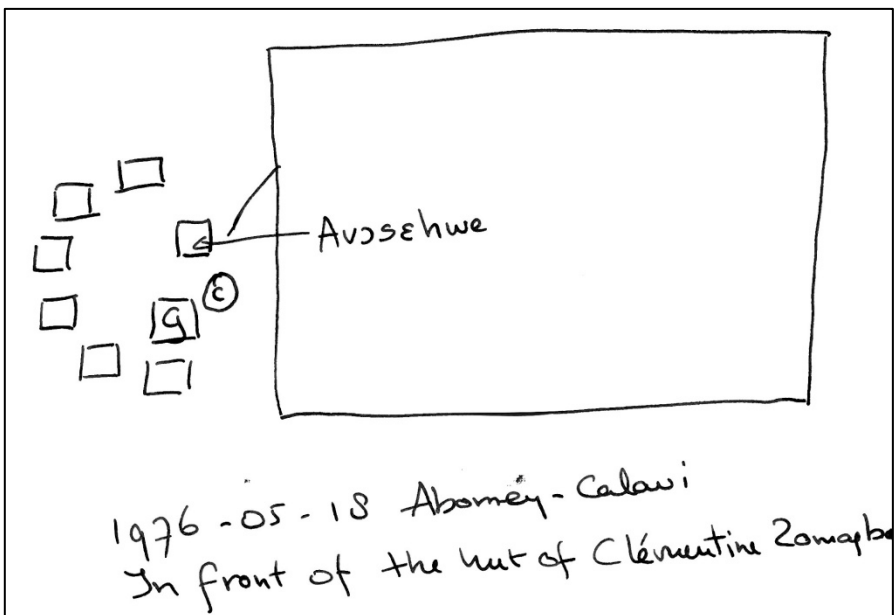 Avɔsɛhwe
c
g
1976-05-18 Abomey-Calavi
In front of the hut of Clémentine